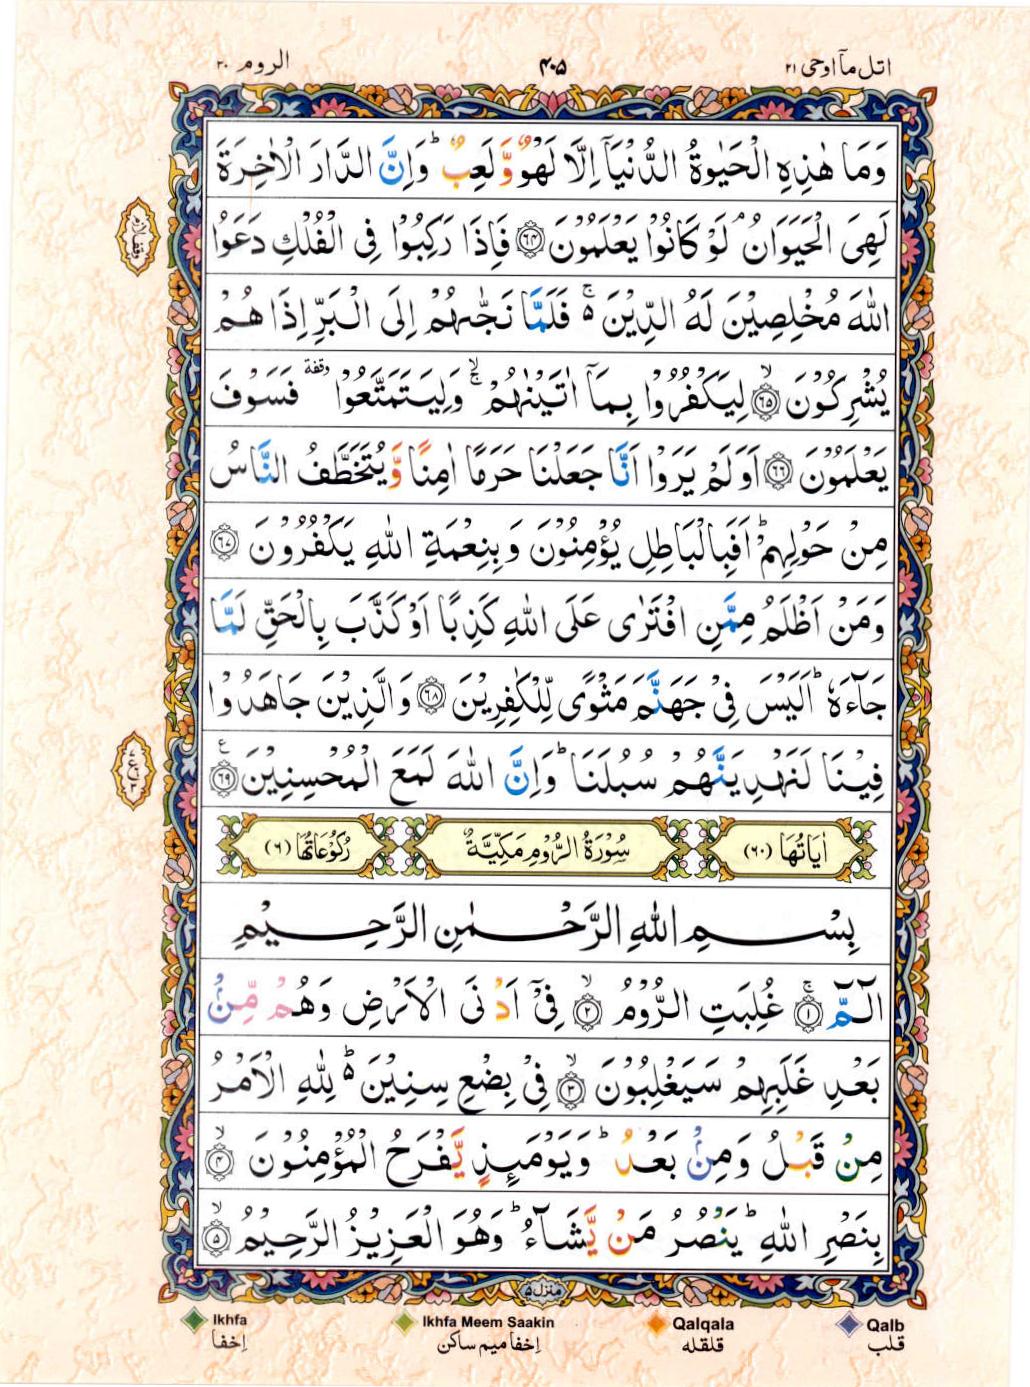 اتل مآ اوحی ۲۱
۴۰۵
الروم ۳۰
وَمَا هٰذِهِ الْحَيٰوةُ الدُّنْيَاۤ اِلَّا لَهْوٌ وَّلَعِبٌ ؕ وَاِنَّ الدَّارَ الْاٰخِرَةَ
لَهِیَ الْحَيَوَانُ ۘ لَوْ كَانُوْا يَعْلَمُوْنَ ﴿۶۴﴾ فَاِذَا رَكِبُوْا فِی الْفُلْكِ دَعَوُا
اللهَ مُخْلِصِيْنَ لَهُ الدِّيْنَ ۬ۚ فَلَمَّا نَجّٰىهُمْ اِلَى الْبَرِّ اِذَا هُمْ
يُشْرِكُوْنَ ﴿ۙ۶۵﴾ لِيَكْفُرُوْا بِمَاۤ اٰتَيْنٰهُمْ ۚۙ وَلِيَتَمَتَّعُوْا وقفة فَسَوْفَ
يَعْلَمُوْنَ ﴿۶۶﴾ اَوَلَمْ يَرَوْا اَنَّا جَعَلْنَا حَرَمًا اٰمِنًا وَّيُتَخَطَّفُ النَّاسُ
مِنْ حَوْلِهِمْ ؕ اَفَبِالْبَاطِلِ يُؤْمِنُوْنَ وَبِنِعْمَةِ اللهِ يَكْفُرُوْنَ ﴿۶۷﴾
وَمَنْ اَظْلَمُ مِمَّنِ افْتَرٰى عَلَى اللهِ كَذِبًا اَوْ كَذَّبَ بِالْحَقِّ لَمَّا
جَآءَهٗ ؕ اَلَيْسَ فِیْ جَهَنَّمَ مَثْوًى لِّلْكٰفِرِيْنَ ﴿۶۸﴾ وَالَّذِيْنَ جَاهَدُوْا
فِيْنَا لَنَهْدِيَنَّهُمْ سُبُلَنَا ؕ وَاِنَّ اللهَ لَمَعَ الْمُحْسِنِيْنَ ﴿۶۹﴾ ع
اٰيَاتُهَا (۶۰)
سُوْرَةُ الرُّوْمِ مَكِّيَّةٌ
رُكُوْعَاتُهَا (۶)
بِسْمِ اللهِ الرَّحْمٰنِ الرَّحِيْمِ
الٓمّٓ ﴿ۚ۱﴾ غُلِبَتِ الرُّوْمُ ﴿ۙ۲﴾ فِیْۤ اَدْنَى الْاَرْضِ وَهُمْ مِّنْۢ
بَعْدِ غَلَبِهِمْ سَيَغْلِبُوْنَ ﴿ۙ۳﴾ فِیْ بِضْعِ سِنِيْنَ ۬ؕ لِلّٰهِ الْاَمْرُ
مِنْ قَبْلُ وَمِنْۢ بَعْدُ ؕ وَيَوْمَئِذٍ يَّفْرَحُ الْمُؤْمِنُوْنَ ﴿ۙ۴﴾
بِنَصْرِ اللهِ ؕ يَنْصُرُ مَنْ يَّشَآءُ ؕ وَهُوَ الْعَزِيْزُ الرَّحِيْمُ ﴿ۙ۵﴾
منزل ۵
Ikhfa
اِخفا
Ikhfa Meem Saakin
اِخفا میم ساکن
Qalqala
قلقله
Qalb
قلب